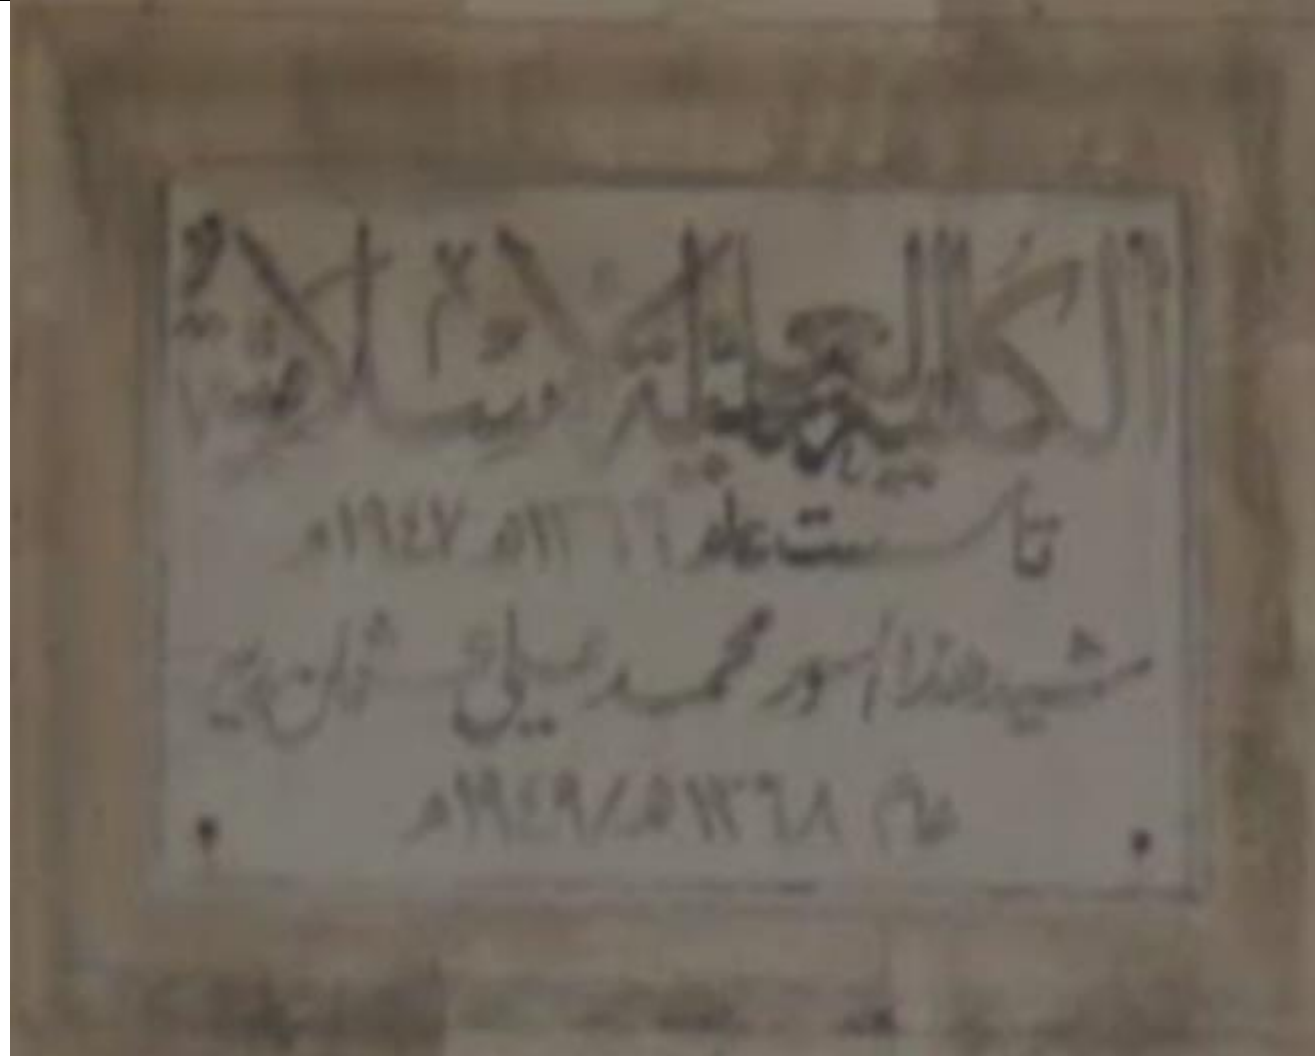 الكلية العلمية الاسلامية
تأسست عام ١٣٦٦ه ١٩٤٧م
شيد هذا السور محمد علي
عام ١٣٦٨ه/١٩٤٩م